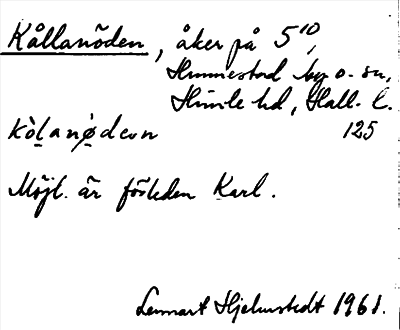 Kållanöden, åker på 5¹⁰,
Hunnestad by o. sn,
Himle hd, Hall. l.
kò̱lanø̱̀dɛvn 125
Möjl. är förleden Karl.
Lennart Hjelmstedt 1961.